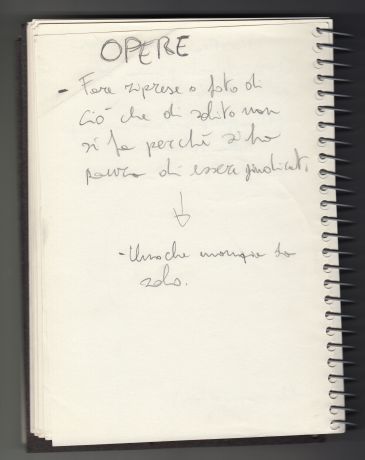 OPERE
- Fare riprese o foto di
ciò che di solito non
si fa perché si ha
paura di essere giudicati.
- Uno che mangia da
solo.